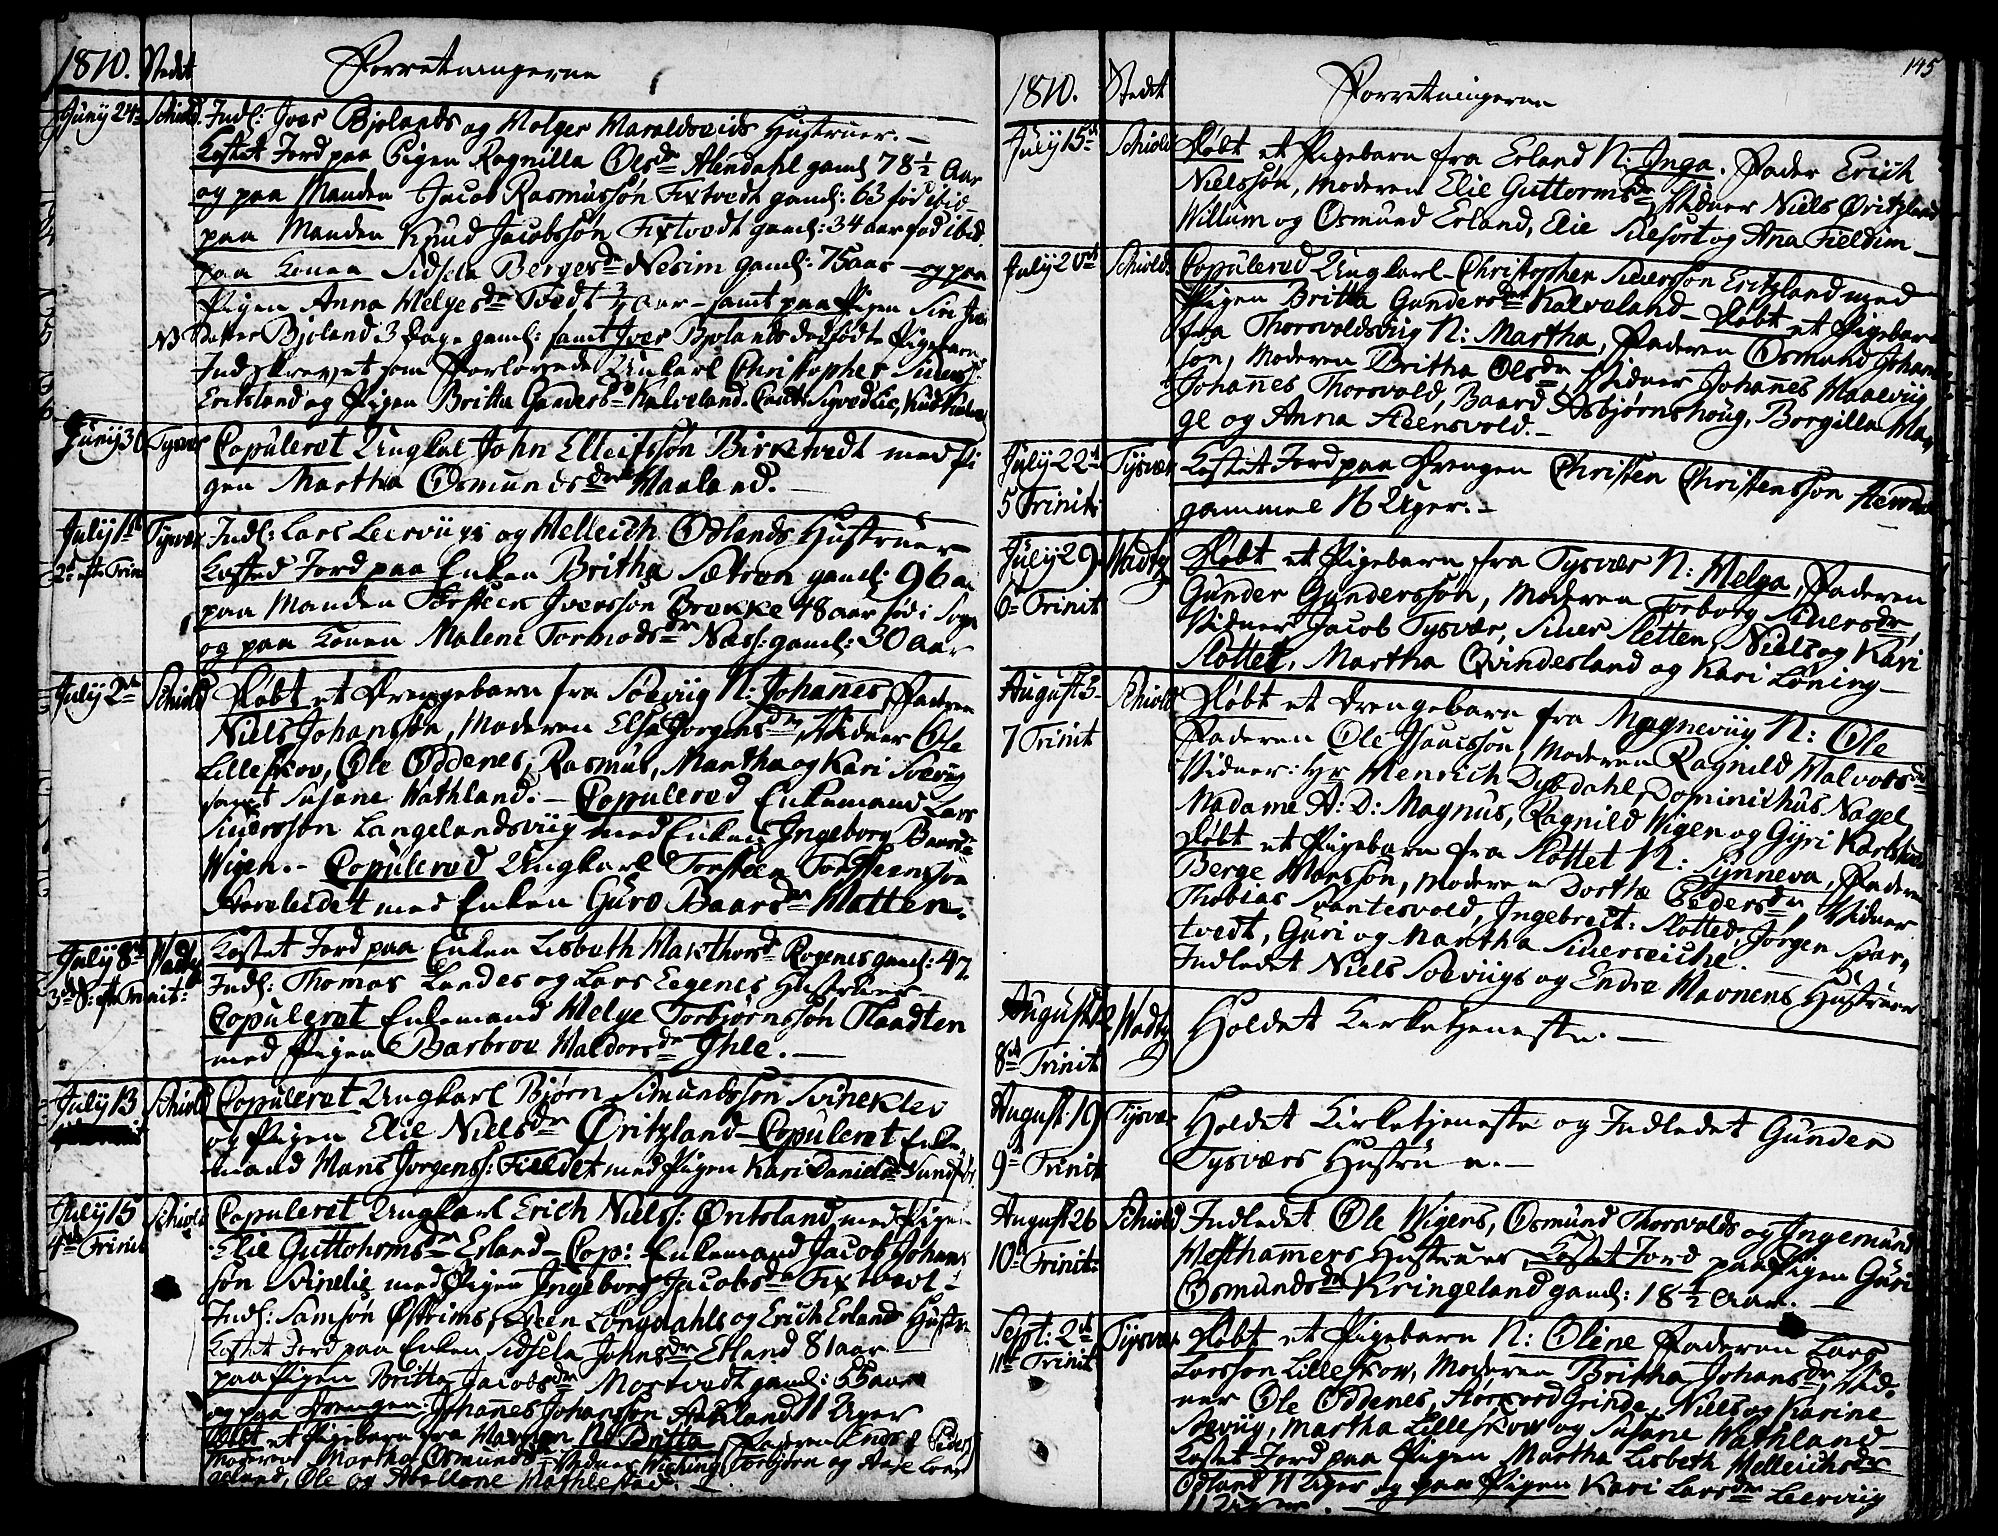 1810. Stedet Forretningerne
Juny 24de Schiold. Indl: Iver Bjolands og Holger Haraldseids Hustruer. -
Kastet Jord paa Pigen Ragnilla Olsdr Alendahl gaml 78 1/2 Aar
og paa Manden Jacob Rasmussøn Fixtvedt gaml: 63 fød ibid
paa Manden Knud Jacobssøn Fixtvedt gaml: 34 aar fød ibid.
paa Konen Sidsela Bergesdr Nesim gaml: 75 aar - og paa
Pigen Anna Helgesdr Tvedt 3/4 Aar - samt paa Pigen Siri
NB Datter Bjoland 3 Dage gaml: samt Iver Bjolands dødfødte Pigebarn
Indskrevet som Forlovede Ungkarl Christopher Siuers:
Eritsland og Pigen Britta Gundersdr Kalveland. Caut: Sigved Lie,
Juny 30 Tysvær Copuleret Ungkal John Elleifssøn Birketvedt med Pi
gen Martha Osmundsdr Haaland. -
July 1ste Tysvær Indl: Lars Leerviigs og Helleich Odlands Hustruer
2d efte Trin Kasted Jord paa Enken Britha Sætran gaml: 96 a
paa Manden Torsteen Iversson Brekke 48 aar fød i Sogn
og paa Konen Malene Tormodsdr Næs: gaml: 30 aar
July 2de Schiold Døbt et Drengebarn fra Soeviig N: Johanes, Faderen
Niels Johanssøn, Moderen Elsa Jørgensdr, Vidner Ole
Lilleskov, Ole Oddenes, Rasmus, Martha og Kari Soeviig
samt Susane Wathland. - Copulered Enkemand Lars
Siuerssøn Langelandsviig med Enken Ingeborg Baarsdr
Wigen. - Copulered Ungkarl Torsteen Torsteensson
med Enken Guro Baarsdr Hatten.
July 8de Wads Kastet Jord paa Enken Lisbeth Hakthorsdr Rogenes gaml: 47.
3d S: efte Trinit: Indl: Thomas Landes og Lars Eegenes Hustruer
Copuleret Enkemand Helge Torbjørnssøn Slaadten
med Pigen Barbrou Haldorsdr Ihle. -
July 13 Schiold Copuleret Ungkarl Bjørn Simundssøn Svineklev
og Pigen Elie Nielsdr Øritzland - Copuleret Enke
mand Hans Jørgens: Fieldet med Pigen Kari Danielsdr
July 15 Schiold Copuleret Ungkarl Erich Niels: Øritsland med Pigen
4de Trinit Elie Guttohrmsdr Erland - Cop: Enkemand Jacob Johans
søn Svinelie med Pigen Ingeborg Jacobsdr Fixtvedt -
Indl: Samsøn Østrims, Steen Longdahls og Erich Erland Hustr
Kastet Jord paa Enken Sidsela Johnsdr Erland 81 aar
paa Pigen Britta Jacobsdr Mostvedt gaml: 55 aar
og paa Drengen: Johanes Johanssøn 11 Uger
Døbt et Pigebarn fra Havnen N: Britta, Faderen Endre Peders
Moderen Martha Osmundsdr Vidner Torbjørn og
Ole og Madlene Mathbestad. -
145
1810. Stedet Forretningerne
July 15de Schiold Døbt et Pigebarn fra Erland N: Inga. Fader Erich
Nielssøn, Moderen Elie Guttormsdr Vidner Niels Øritzland
Willum og Osmund Erland, Elie Silfort og Ana Fieldim -
July 20de Schiold Copulered Ungkarl Christopher Siuerssøn Eritzland med
Pigen Britta Gundersdr Kalveland - Døbt et Pigebarn
fra Thorsvoldsviig N: Martha, Faderen Osmund Johanes
søn, Moderen Britha Olsdr, Vidner Johanes Maalviig
Johanes Thorsvold, Baard Asbjørnshoug, Borgilla
ge og Anna Steensvold. -
July 22de Tysvær Kastet Jord paa Drengen Christen Christenssøn
5 Trinit: gammel 16 Uger. -
July 29 Wads Døbt et Pigebarn fra Tysvær N: Helga, Faderen
6te Trinit Gunder Gunderssøn, Moderen Torborg Siuersdr,
Vidner Jacob Tysvær, Siuer Sletten, Niels og Kari
Slottet, Martha Qvindesland og Kari Løning -
August 5 Schiold Døbt et Drengebarn fra Magneviig N: Ole
7 Trinit Faderen Ole Isaacssøn, Moderen Ragnild Halvorsdr
Vidner: Hr Henrich Dybdahl, Dominichus Nagel
Madame A: D: Magnus, Ragnild Wigen og Gyri
Døbt et Pigebarn fra Slottet N: Synneva, Fader
Berge Monssøn, Moderen Dorthe Pedersdr, Vidner
Thobias Svantesvold, Ingebregt: Slotted, Jørgen Svar,
tvedt, Guri og Martha Siuerseiche. -
Indledet Niels Soeviigs og Endre Havnens Hustruer
August 12 Wads Holdet Kirketjeneste. -
8de Trinit
August 19 Tysvær Holdet Kirketjeneste og Indledet Gunder
9de Trinit Tysværs Hustrue. -
August 26 Schiold Indledet Ole Wigens, Osmund Thorsvolds og Ingemund
10de Trinit: Hosthamers Hustruer, Kastet Jord paa Pigen Guri
Osmundsdr Kringeland gaml: 18 1/2 Aar. -
Sept: 2de Tysvær Døbt et Pigebarn N: Oline Faderen Lars
11te Trinit Larssøn Lilleskov, Moderen Britha Johansdr, Vid.
ner Ole Oddenes, Grinde, Niels og Karine
Soeviig, Martha Lilleskov og Susane Wathland -
Kastet Jord paa Pigen Martha Lisbeth Helleichsdr
Odland 11 Uger og paa Pigen Kari Larsdr Leerviig